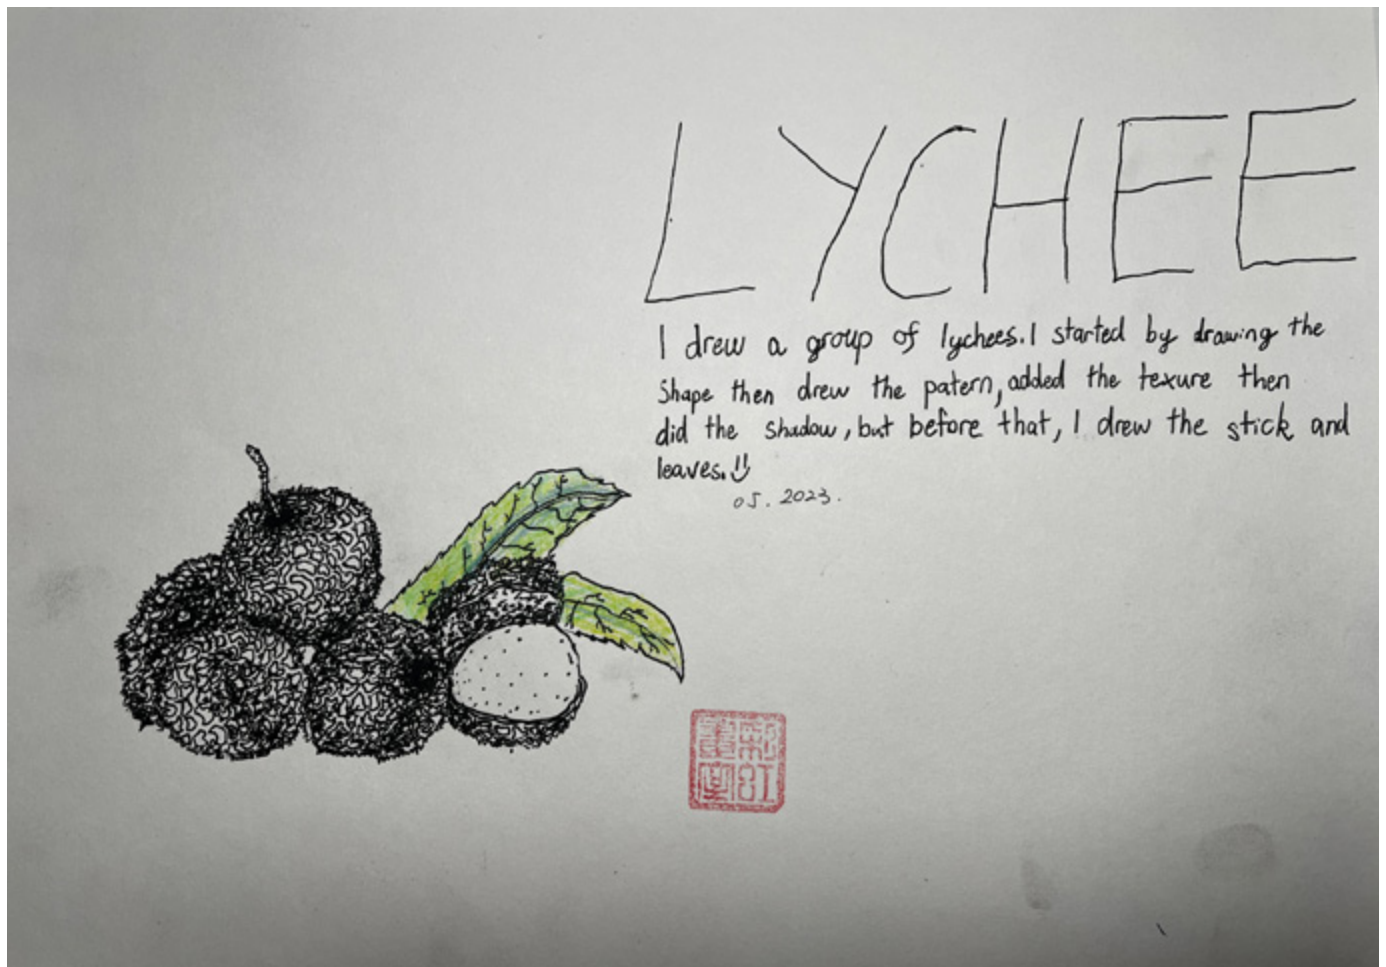 LYCHEE
I drew a group of lychees. I started by drawing the
shape then drew the patern, added the texure then
did the shadow, but before that, I drew the stick and
leaves.
05. 2023.